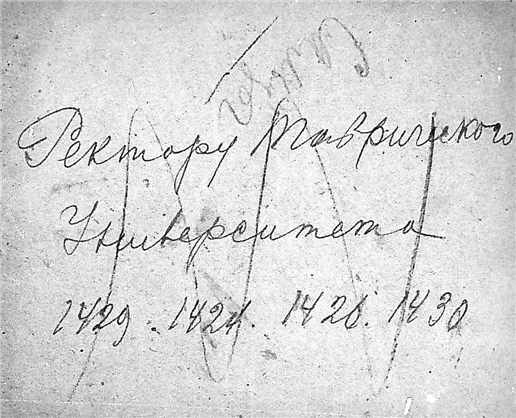 Ректору Таврического
Университета
1429. 1421. 1426. 1430